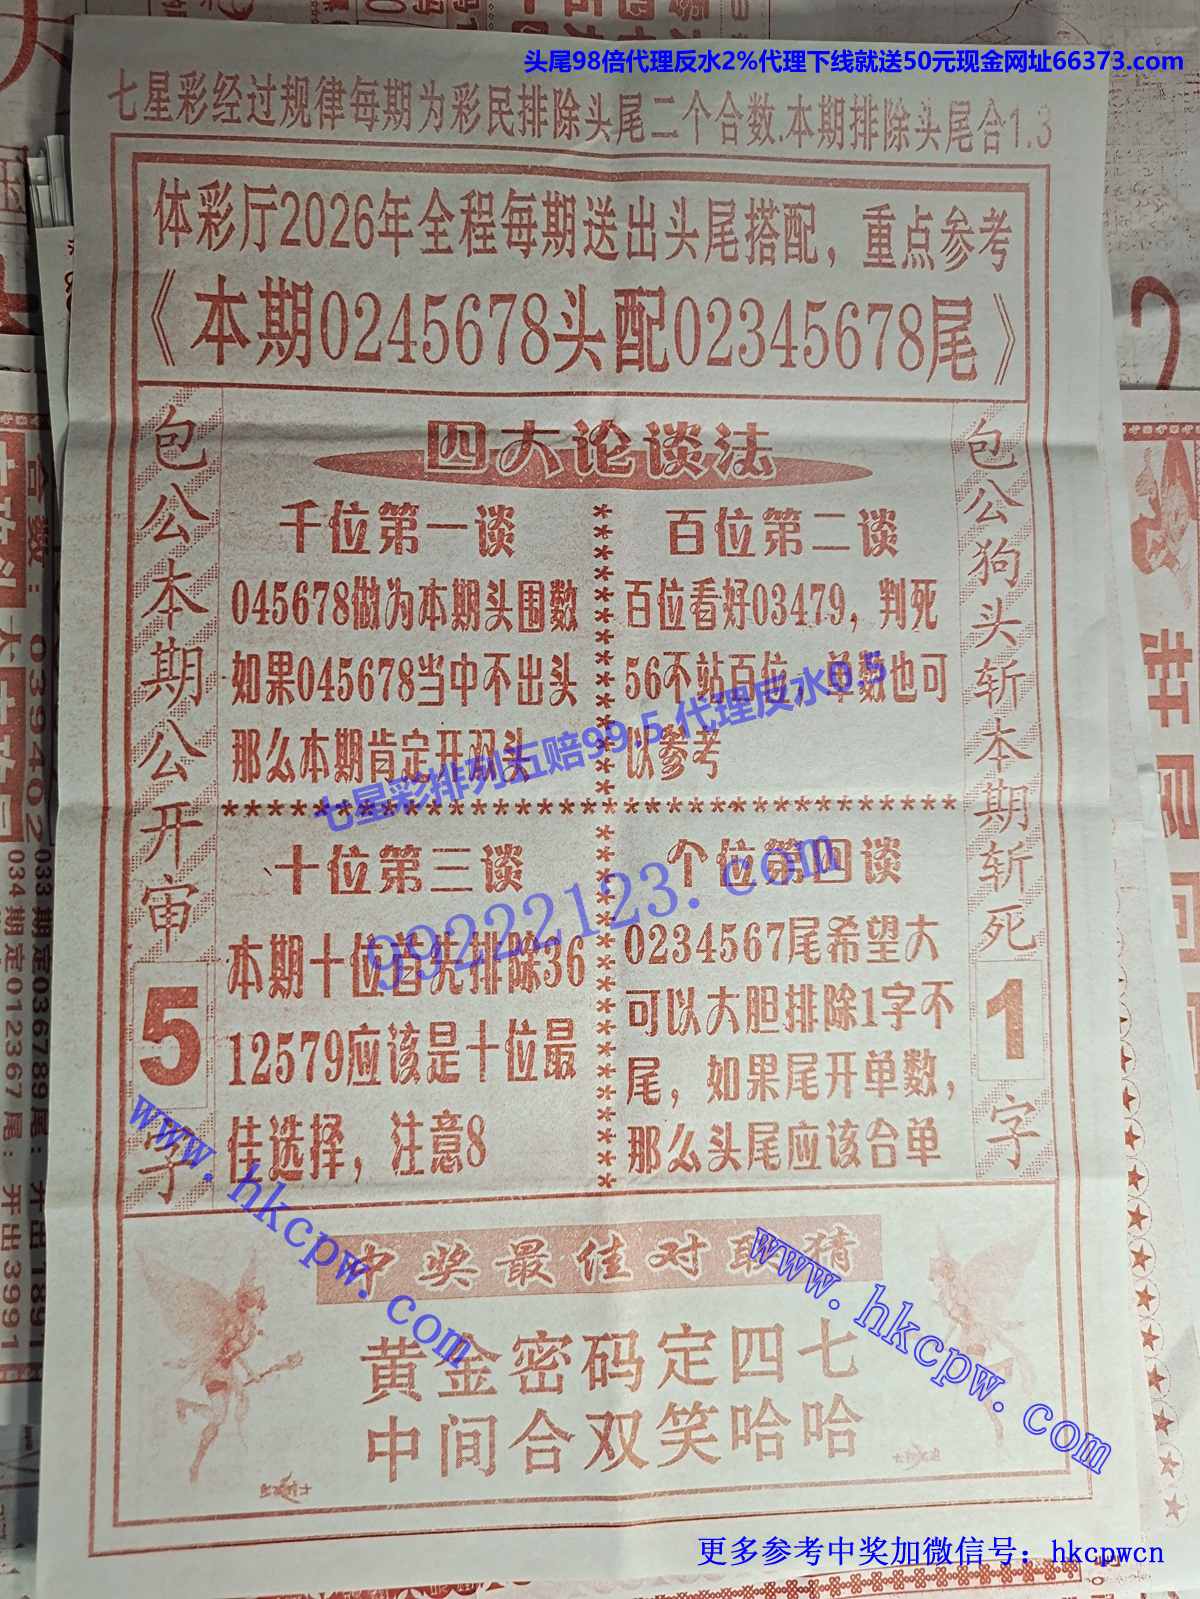 头尾98倍代理反水2%代理下线就送50元现金网址66373.com
七星彩经过规律每期为彩民排除头尾二个合数.本期排除头尾合1.3
体彩厅2026年全程每期送出头尾搭配，重点参考
《本期0245678头配02345678尾》
包公本期公开审5字
四大论谈法
千位第一谈
045678做为本期头围数
如果045678当中不出头
那么本期肯定开双头
百位第二谈
百位看好03479，判死
56不站百位，单数也可
以参考
十位第三谈
本期十位首先排除36
12579应该是十位最
佳选择，注意8
个位第四谈
0234567尾希望大
可以大胆排除1字不
尾，如果尾开单数，
那么头尾应该合单
包公狗头斩本期斩死1字
七星彩排列五赔99.5代理反水0.5
99222123.com
中奖最佳对联猜
黄金密码定四七
中间合双笑哈哈
www.hkcpw.com
www.hkcpw.com
更多参考中奖加微信号：hkcpwcn
合数：039402
033期定036789尾：开出1891
034期定012367尾：开出3991